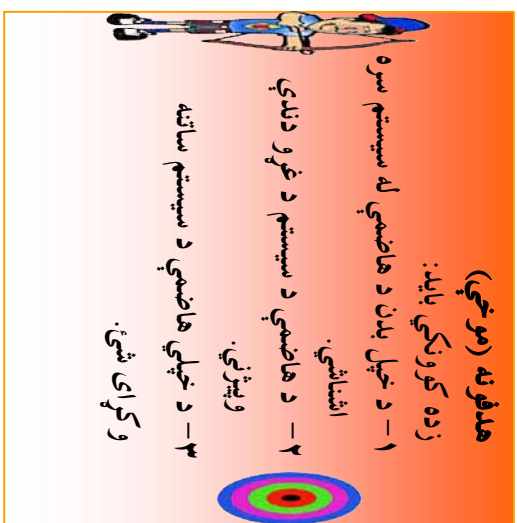 هدفونه (موخې)
زده کوونکي باید:
۱- د خپل بدن د هاضمې له سیستم سره
اشناشي.
۲- د هاضمې د سیستم د غړو دندې
وپیژني.
۳- د خپلې هاضمې د سیستم ساتنه
وکړای شئ.